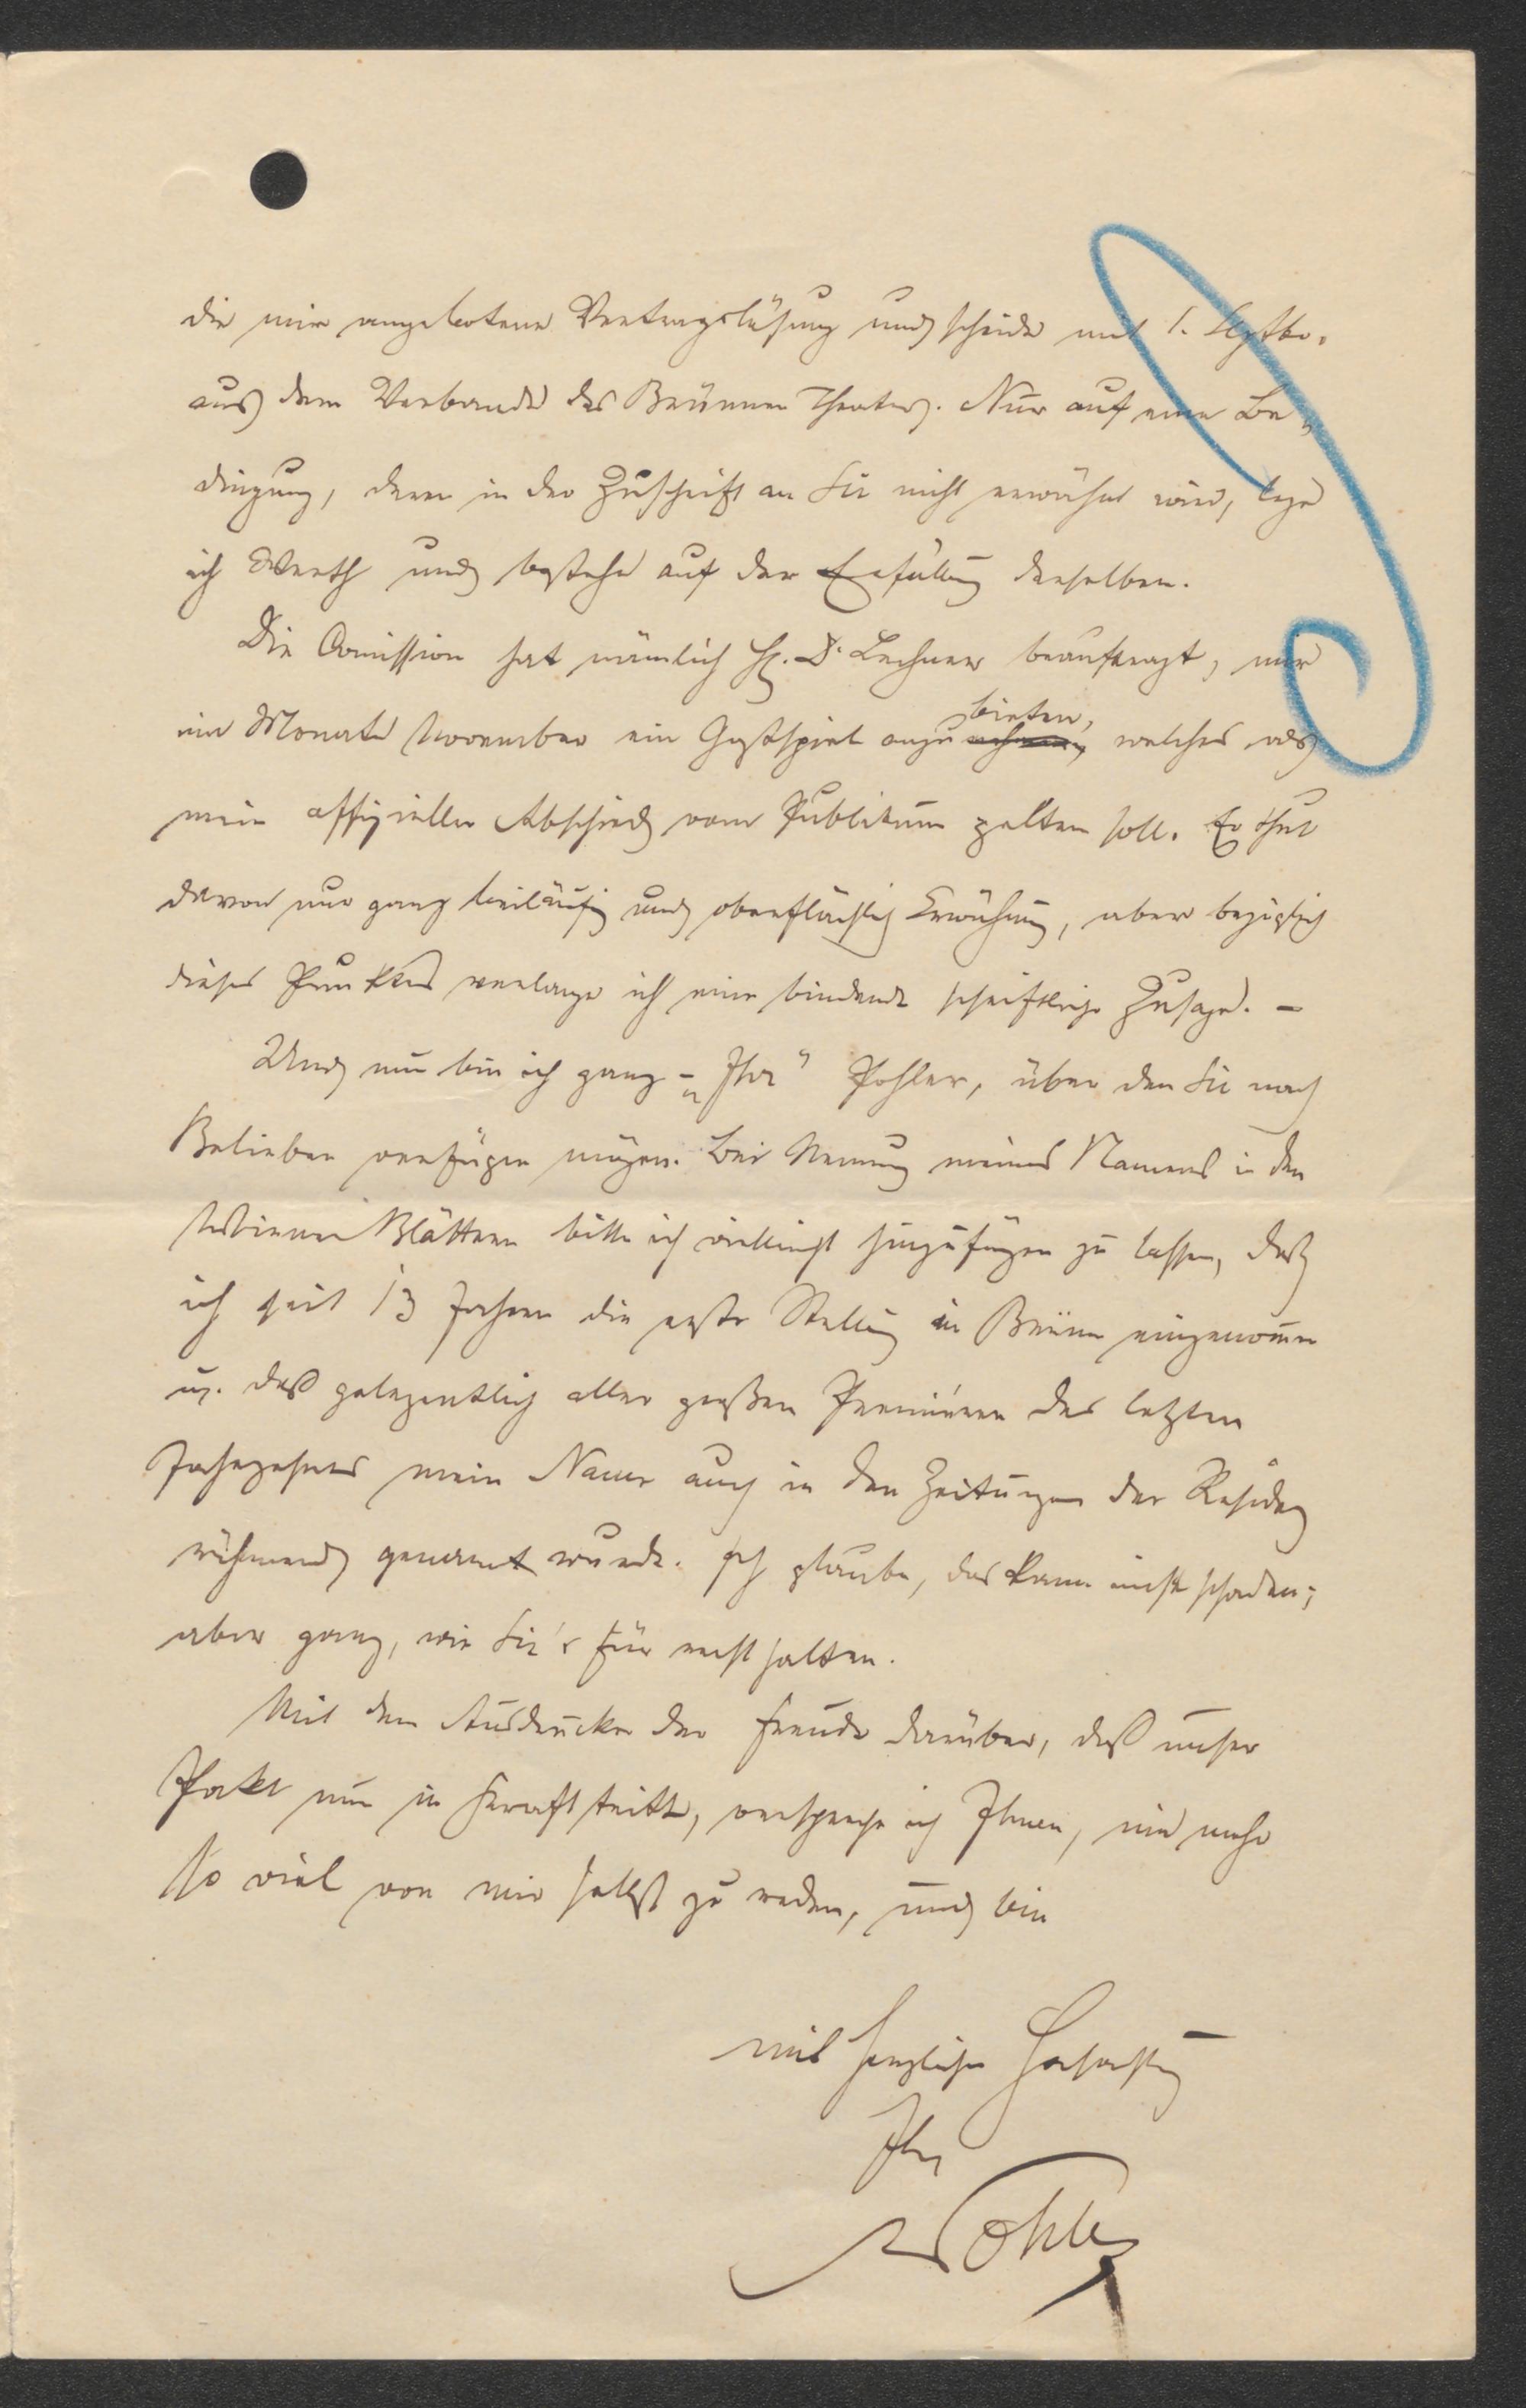 die mir angebotene Vertragslösung und scheide mit 1. Septbr.
aus dem Verbande des Brünner Theaters. Nur auf eine Be-
dingung, deren in der Zuschrift an Sie nicht erwähnt wird, lege
ich Werth und bestehe auf der Erfüllung derselben.
Die Comission hat nämlich H. Dr. Lechner beauftragt, mir
im Monate November ein Gastspiel anzubieten, welches als
mein offizieller Abschied vom Publikum gelten soll. Er thut
davon nur ganz beiläufig und oberflächlich Erwähnung, aber bezüglich
dieses Punktes verlange ich eine bindende schriftliche Zusage. –
Und nun bin ich ganz – „Ihr" Pohler, über den Sie nach
Belieben verfügen mögen. Bei Nennung meines Namens in den
Wiener Blättern bitte ich vielleicht hinzufügen zu lassen, daß
ich seit 13 Jahren die erste Stellung in Brünn eingenommen
u. daß gelegentlich aller großen Premièren des letzten
Jahrzehntes mein Name auch in den Zeitungen der Residenz
rühmend genannt wurde. Ich glaube, das kann nicht schaden;
aber ganz, wie Sie's für recht halten.
Mit dem Ausdrucke der Freude darüber, daß unser
Pakt nun in Kraft tritt, verspreche ich Ihnen, nie mehr
so viel von mir selbst zu reden, und bin
mit herzlicher Hochachtung
Ihr
Pohler